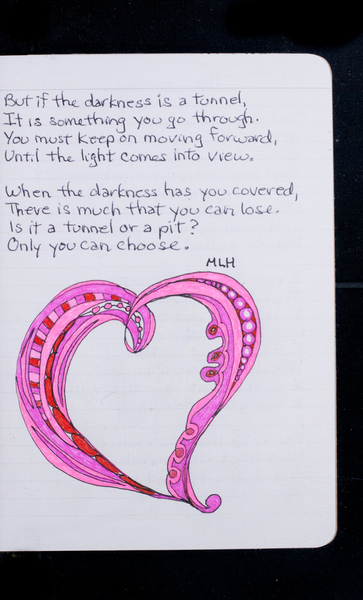 But if the darkness is a tunnel,
It is something you go through.
You must keep on moving forward,
Until the light comes into view.
When the darkness has you covered,
There is much that you can lose.
Is it a tunnel or a pit?
Only you can choose.
MLH